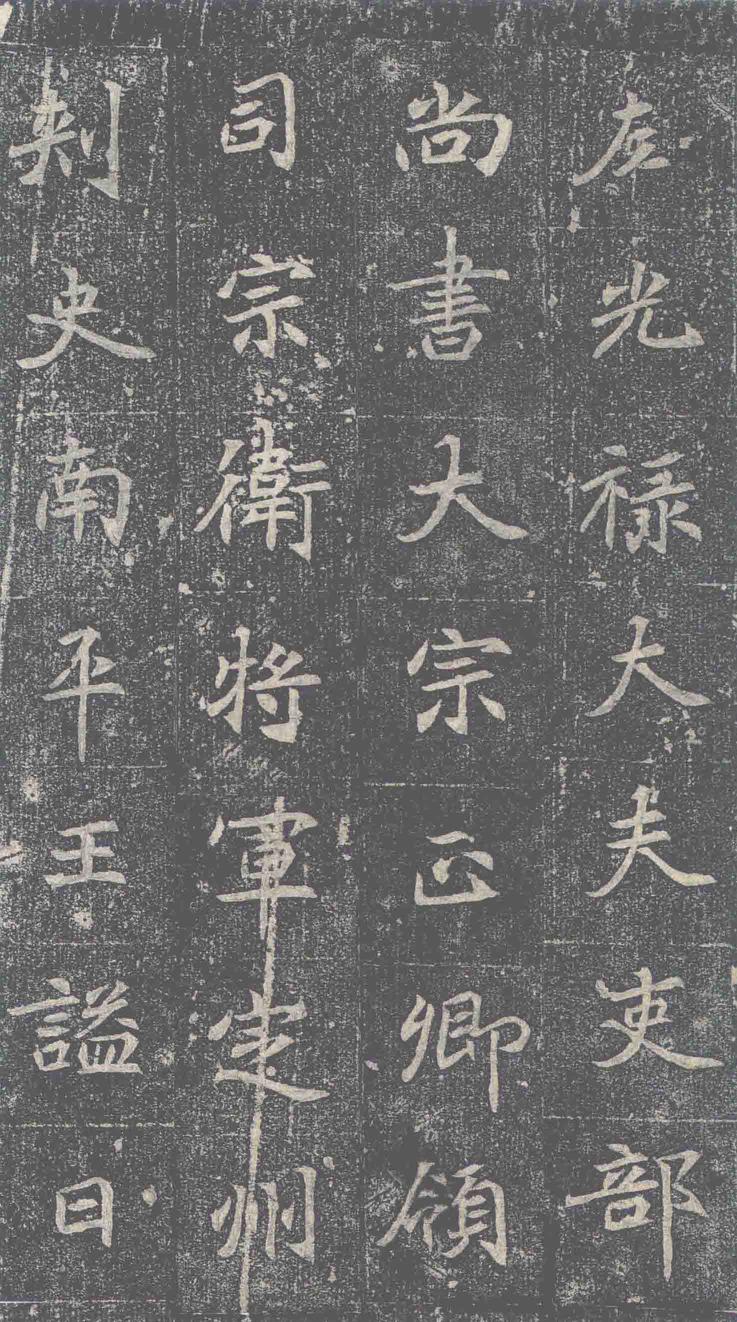 左光祿大夫吏部
尚書大宗正卿領
司宗衛將軍定州
刺史南平王謚曰